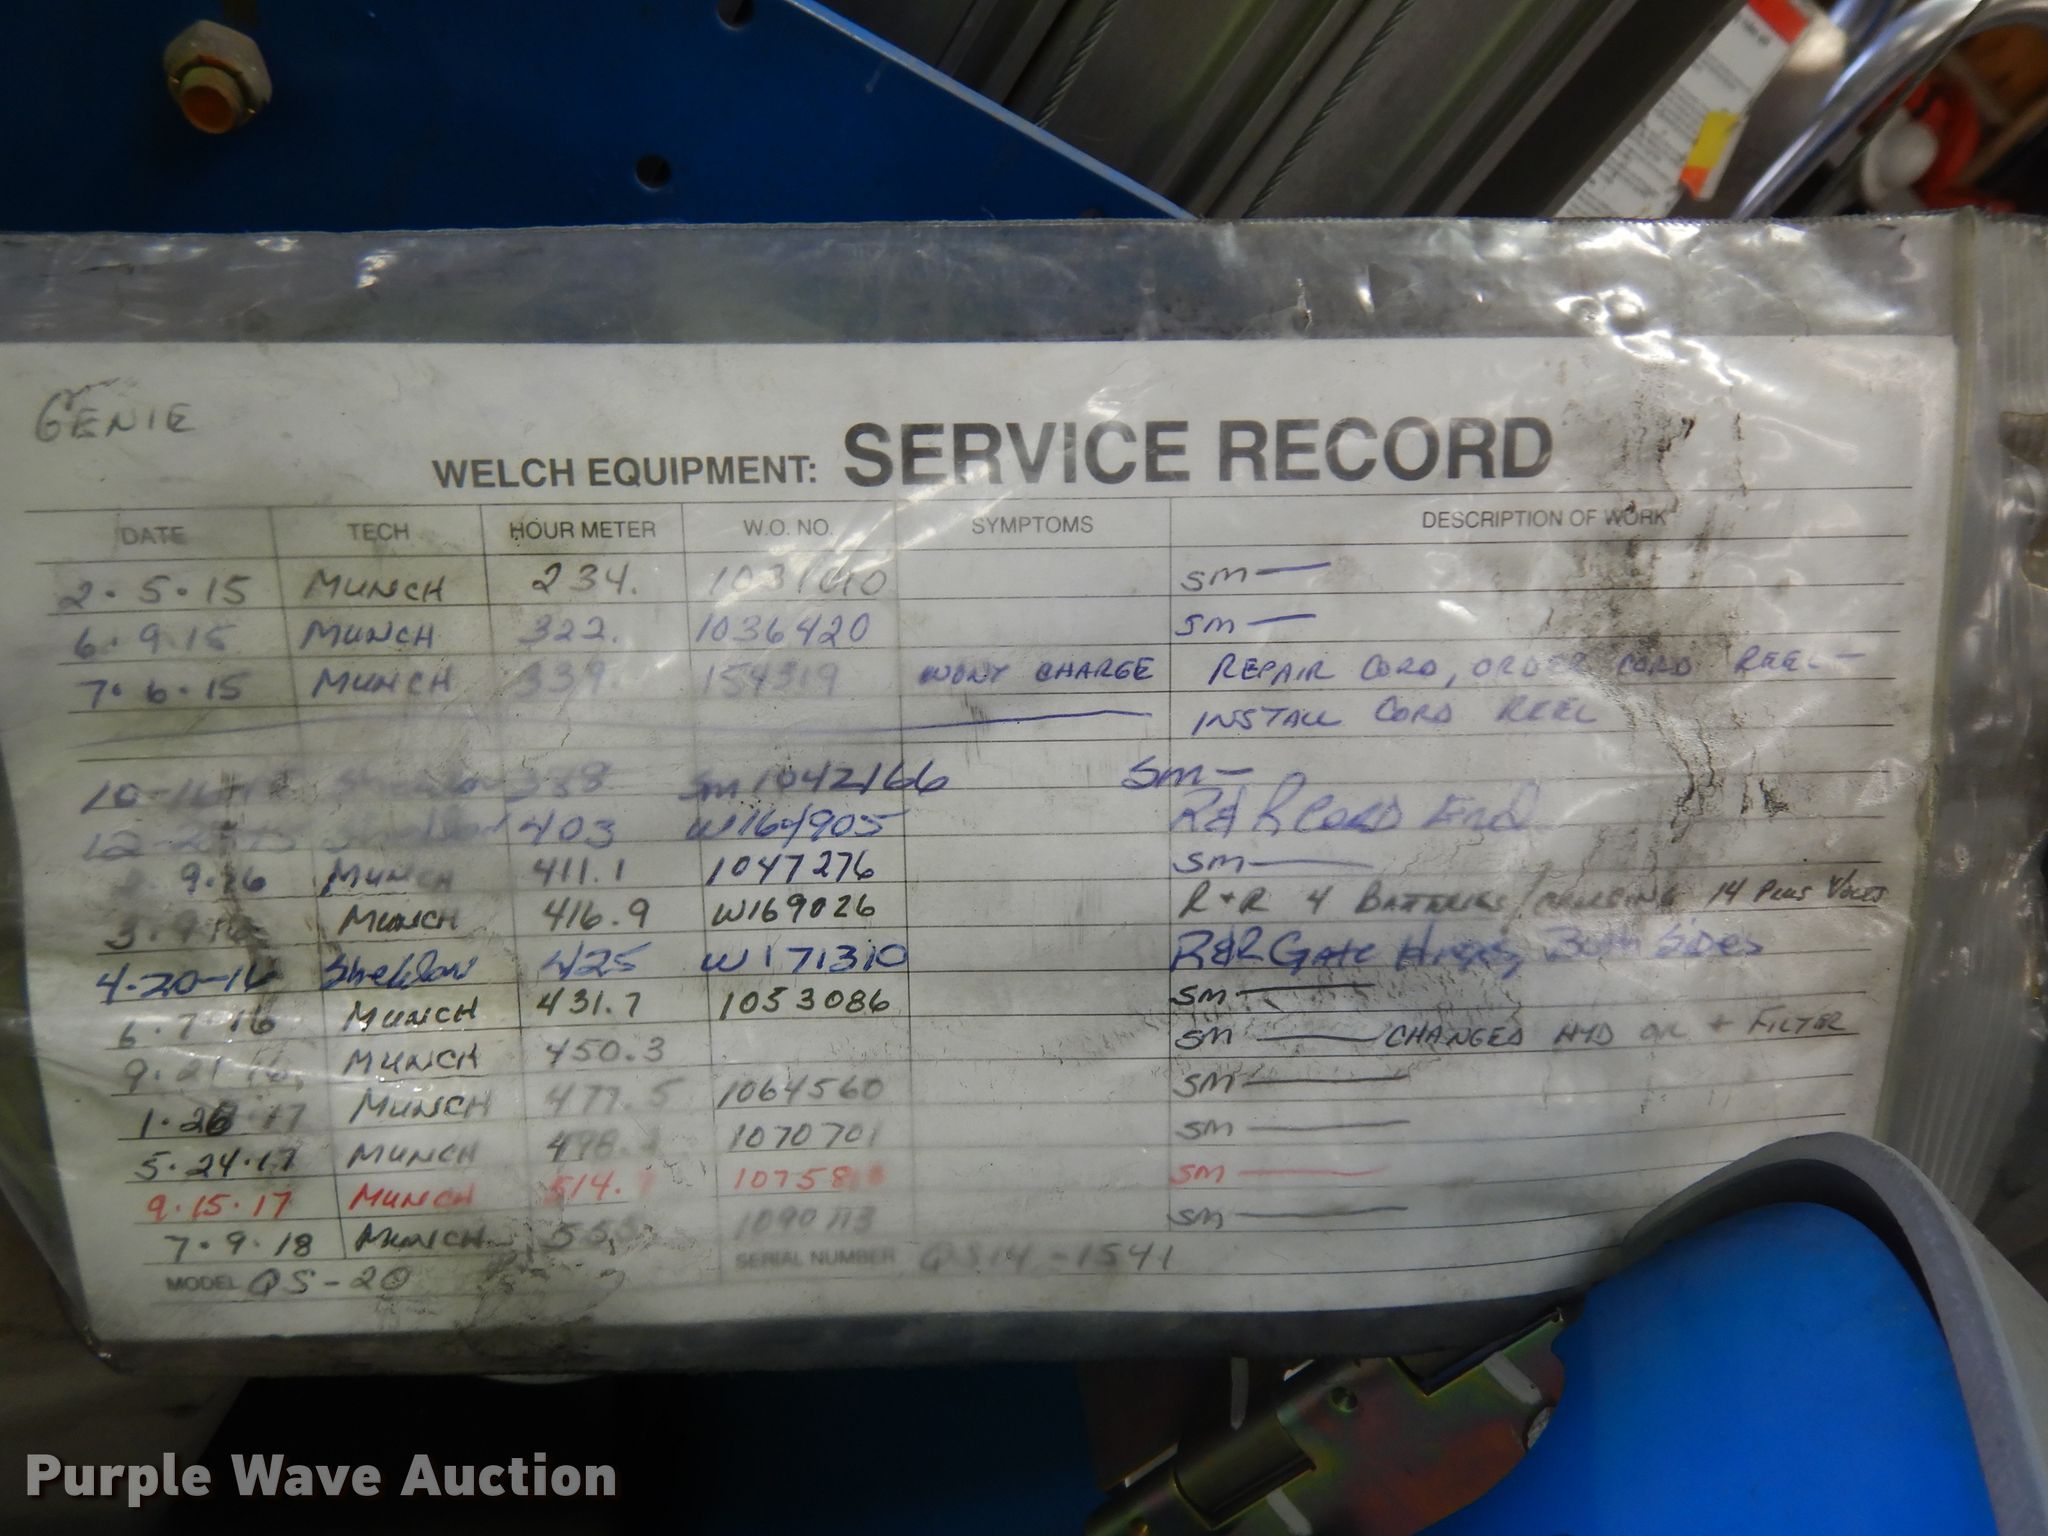 GENIE
WELCH EQUIPMENT: SERVICE RECORD
DATE TECH HOUR METER W.O. NO. SYMPTOMS DESCRIPTION OF WORK
2.5.15 MUNCH 234. SM
6.9.15 MUNCH 322. 1036420 SM
7.6.15 MUNCH 339. 154319 WONT CHARGE REPAIR CORD, ORDER CORD REEL -
INSTALL CORD REEL
SM 1042166 SM -
403 W164905 R&R CORD END
MUNCH 411.1 1047276 SM
MUNCH 416.9 W169026 R + R 4 BATTERIES 14 PLUS VOLTS
4-20-16 Sheldon 425 W171310 R&R GATE Hinges, Both Sides
6.7.16 MUNCH 431.7 1053086 SM
9.21.16 MUNCH 450.3 SM CHANGED HYD OIL + FILTER
MUNCH 477.5 1064560 SM
5.24.17 MUNCH 1070701 SM
9.15.17 MUNCH SM
7.9.18 MUNCH SM
MODEL QS-20 SERIAL NUMBER QS14-1541
Purple Wave Auction